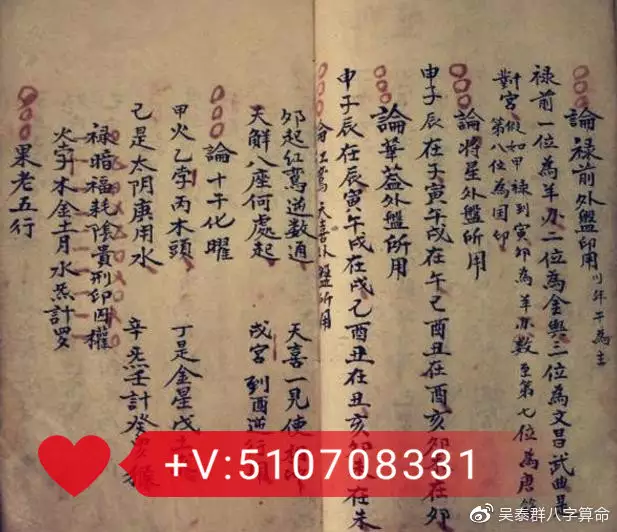 論禄前外盤印用 以年干為主
禄前一位為羊刃二位為金輿三位為文昌武曲是
對宮 假如甲禄到寅卯為羊刃數至第七位為唐
第八位為国印
論将星外盤所用
申子辰在子寅午戌在午巳酉丑在酉亥卯 在卯
論華蓋外盤所用
申子辰在辰寅午戌在戌巳酉丑在丑亥卯 在未
論红鸞天喜外盤所用
卯起紅鸞逆数通 天喜一見使
天解八座何處起 戌宮到酉逆
論十干化曜
甲火乙孛丙木頭 丁是金星戊
己是太阴庚用水 辛炁壬計癸
禄暗福耗陰貴刑印囚權
火孛木金土月水炁計罗
果老五行
+V:510708331
@吴泰群八字算命